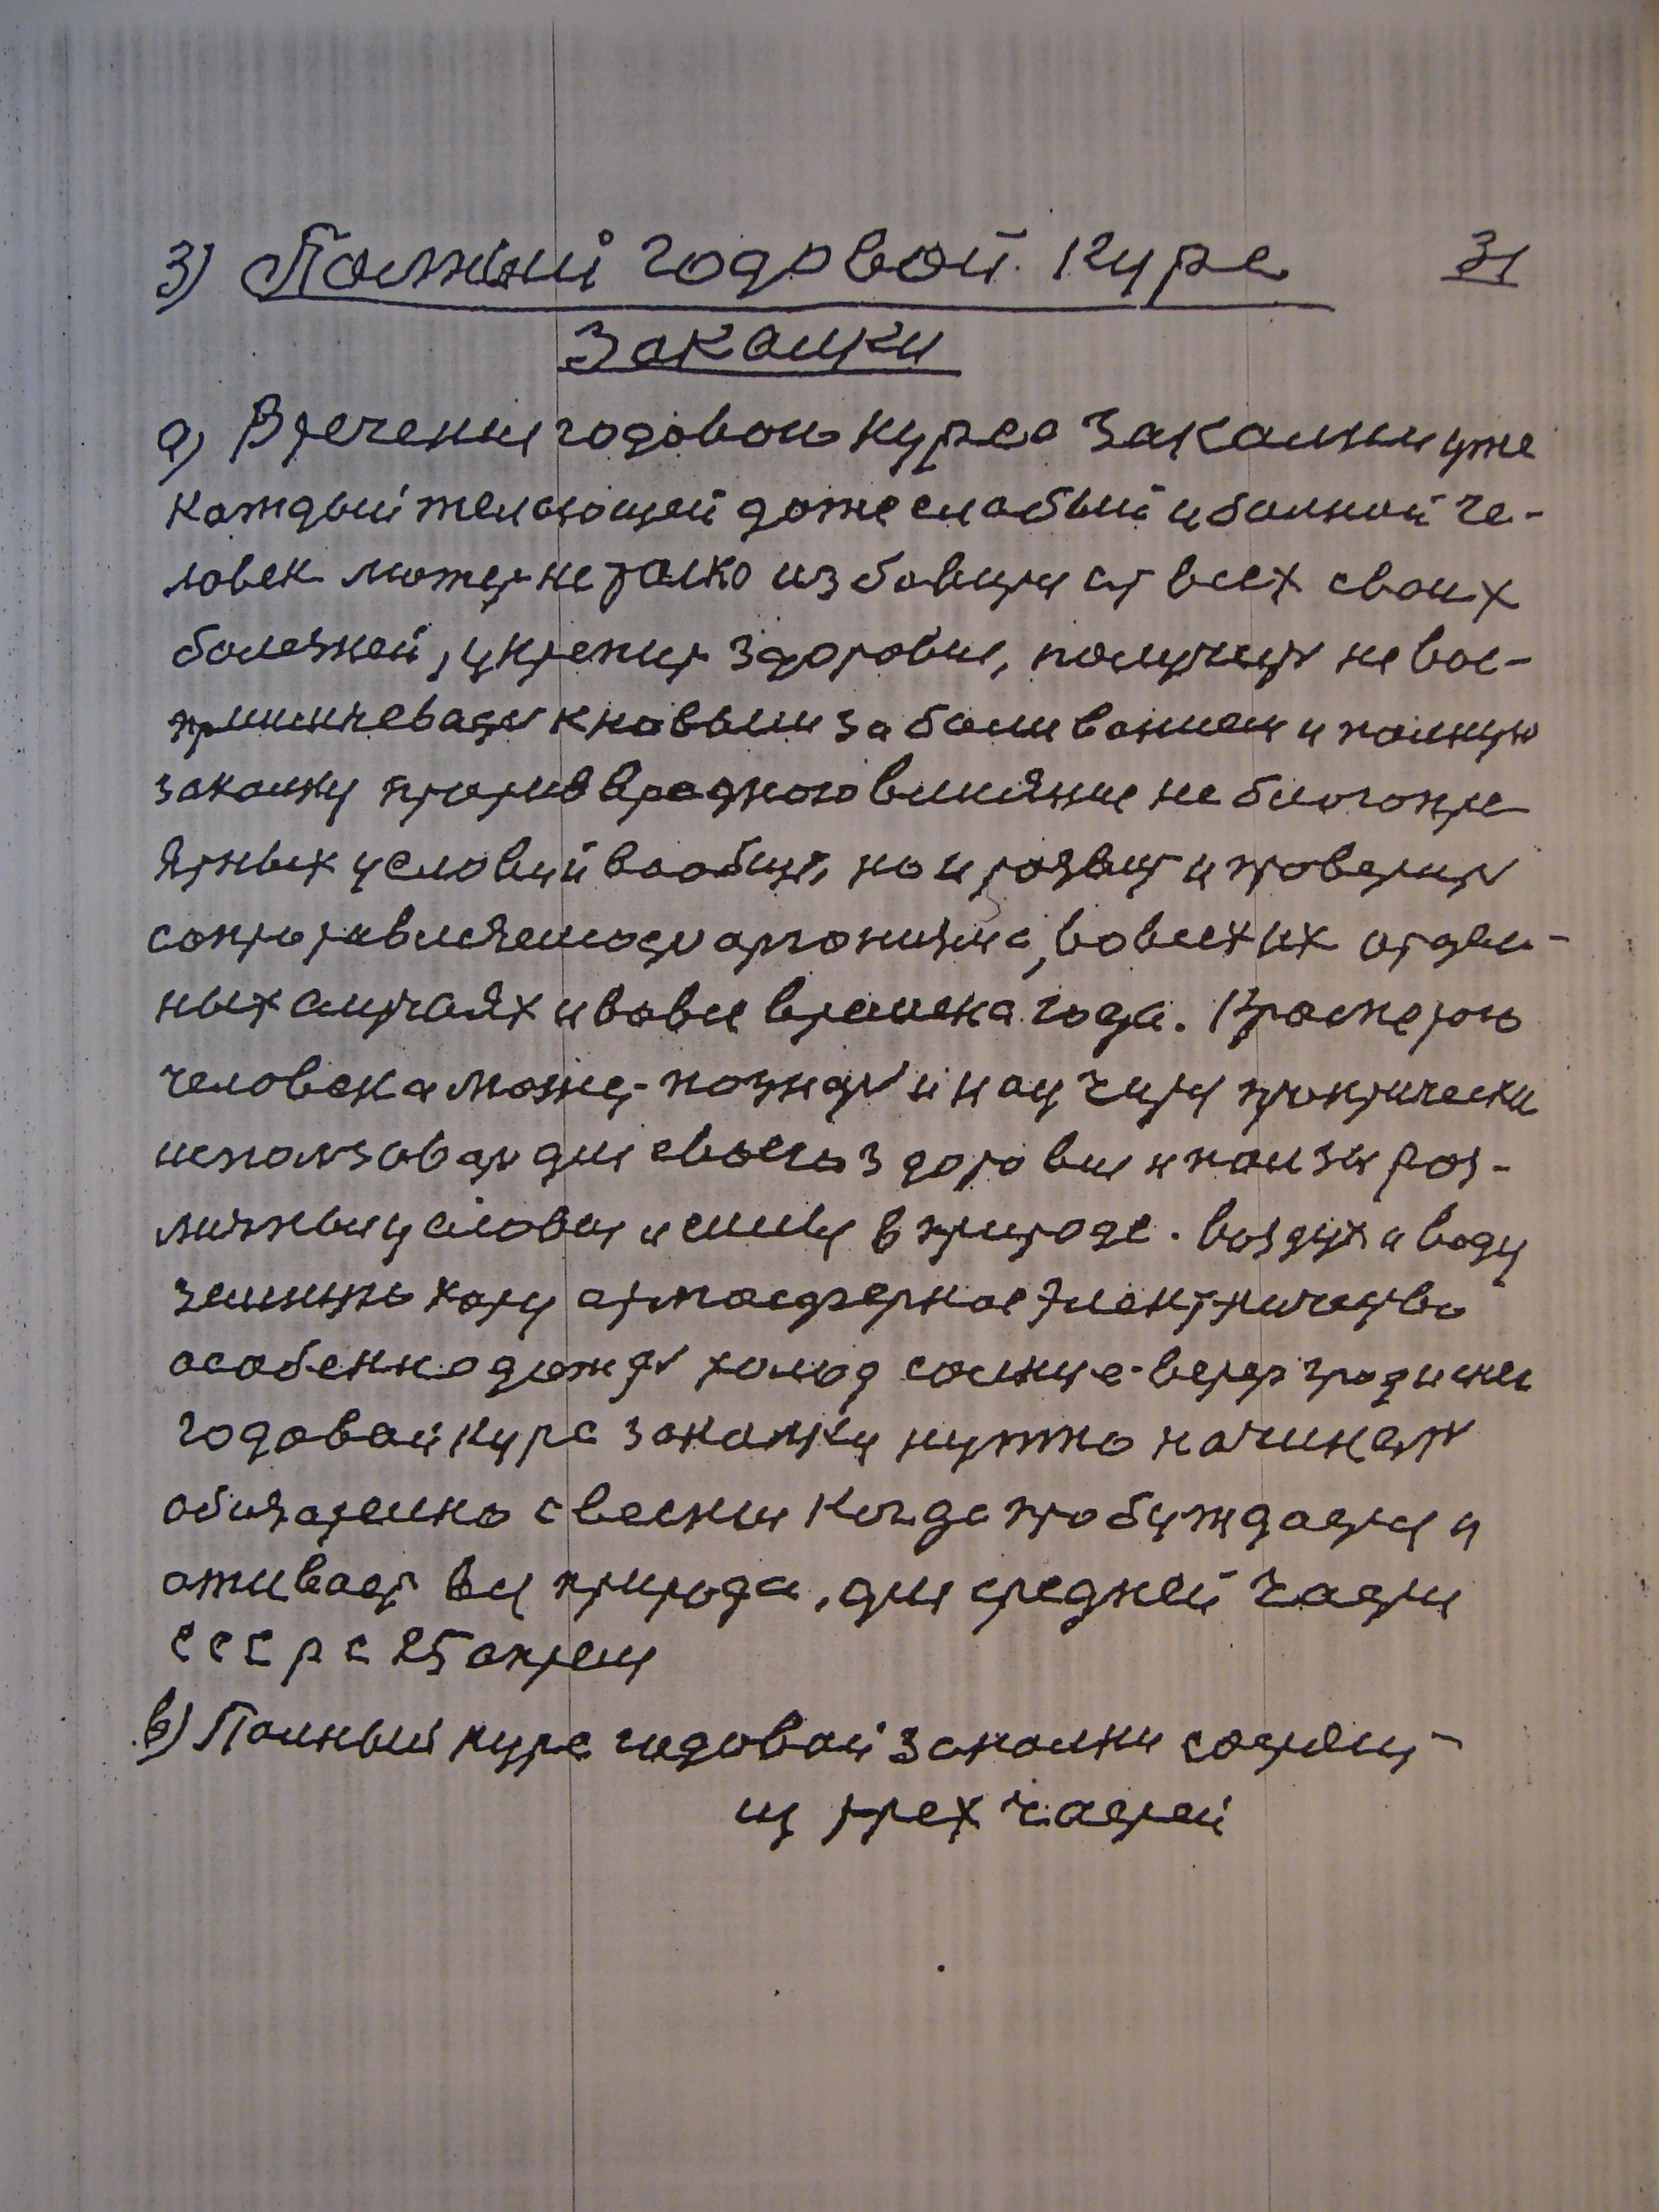 3) Полный годовой курс 31
Закалки
а) Втечении годового курса Закалки уже
каждый желающей даже слабый и болной че-
ловек может не толко избавится от всех своих
болезней, укрепит здоровие, получить невос-
приимчевасть к новым заболиванием и полную
закалку против вредного влияние не благоприе
ятных условий вообще, но и развит и проверить
сопротивляемость организма, во всех их отдел-
ных случаях и вовсе времена года. Кроме того
человека может познать и научится практически
исползовать для своего здоровие и ползы раз-
личный условия и силы в природе. воздух и воду
земную кору атмосферное электричество
особенно дождь холод солнце ветер
годовой курс закалки нужно начинать
обизателно с весны когда пробуждается и
оживает вся природа, для средней части
СССР с 25 апреля
в) Полный курс годовой закалки состоит
из трех частей